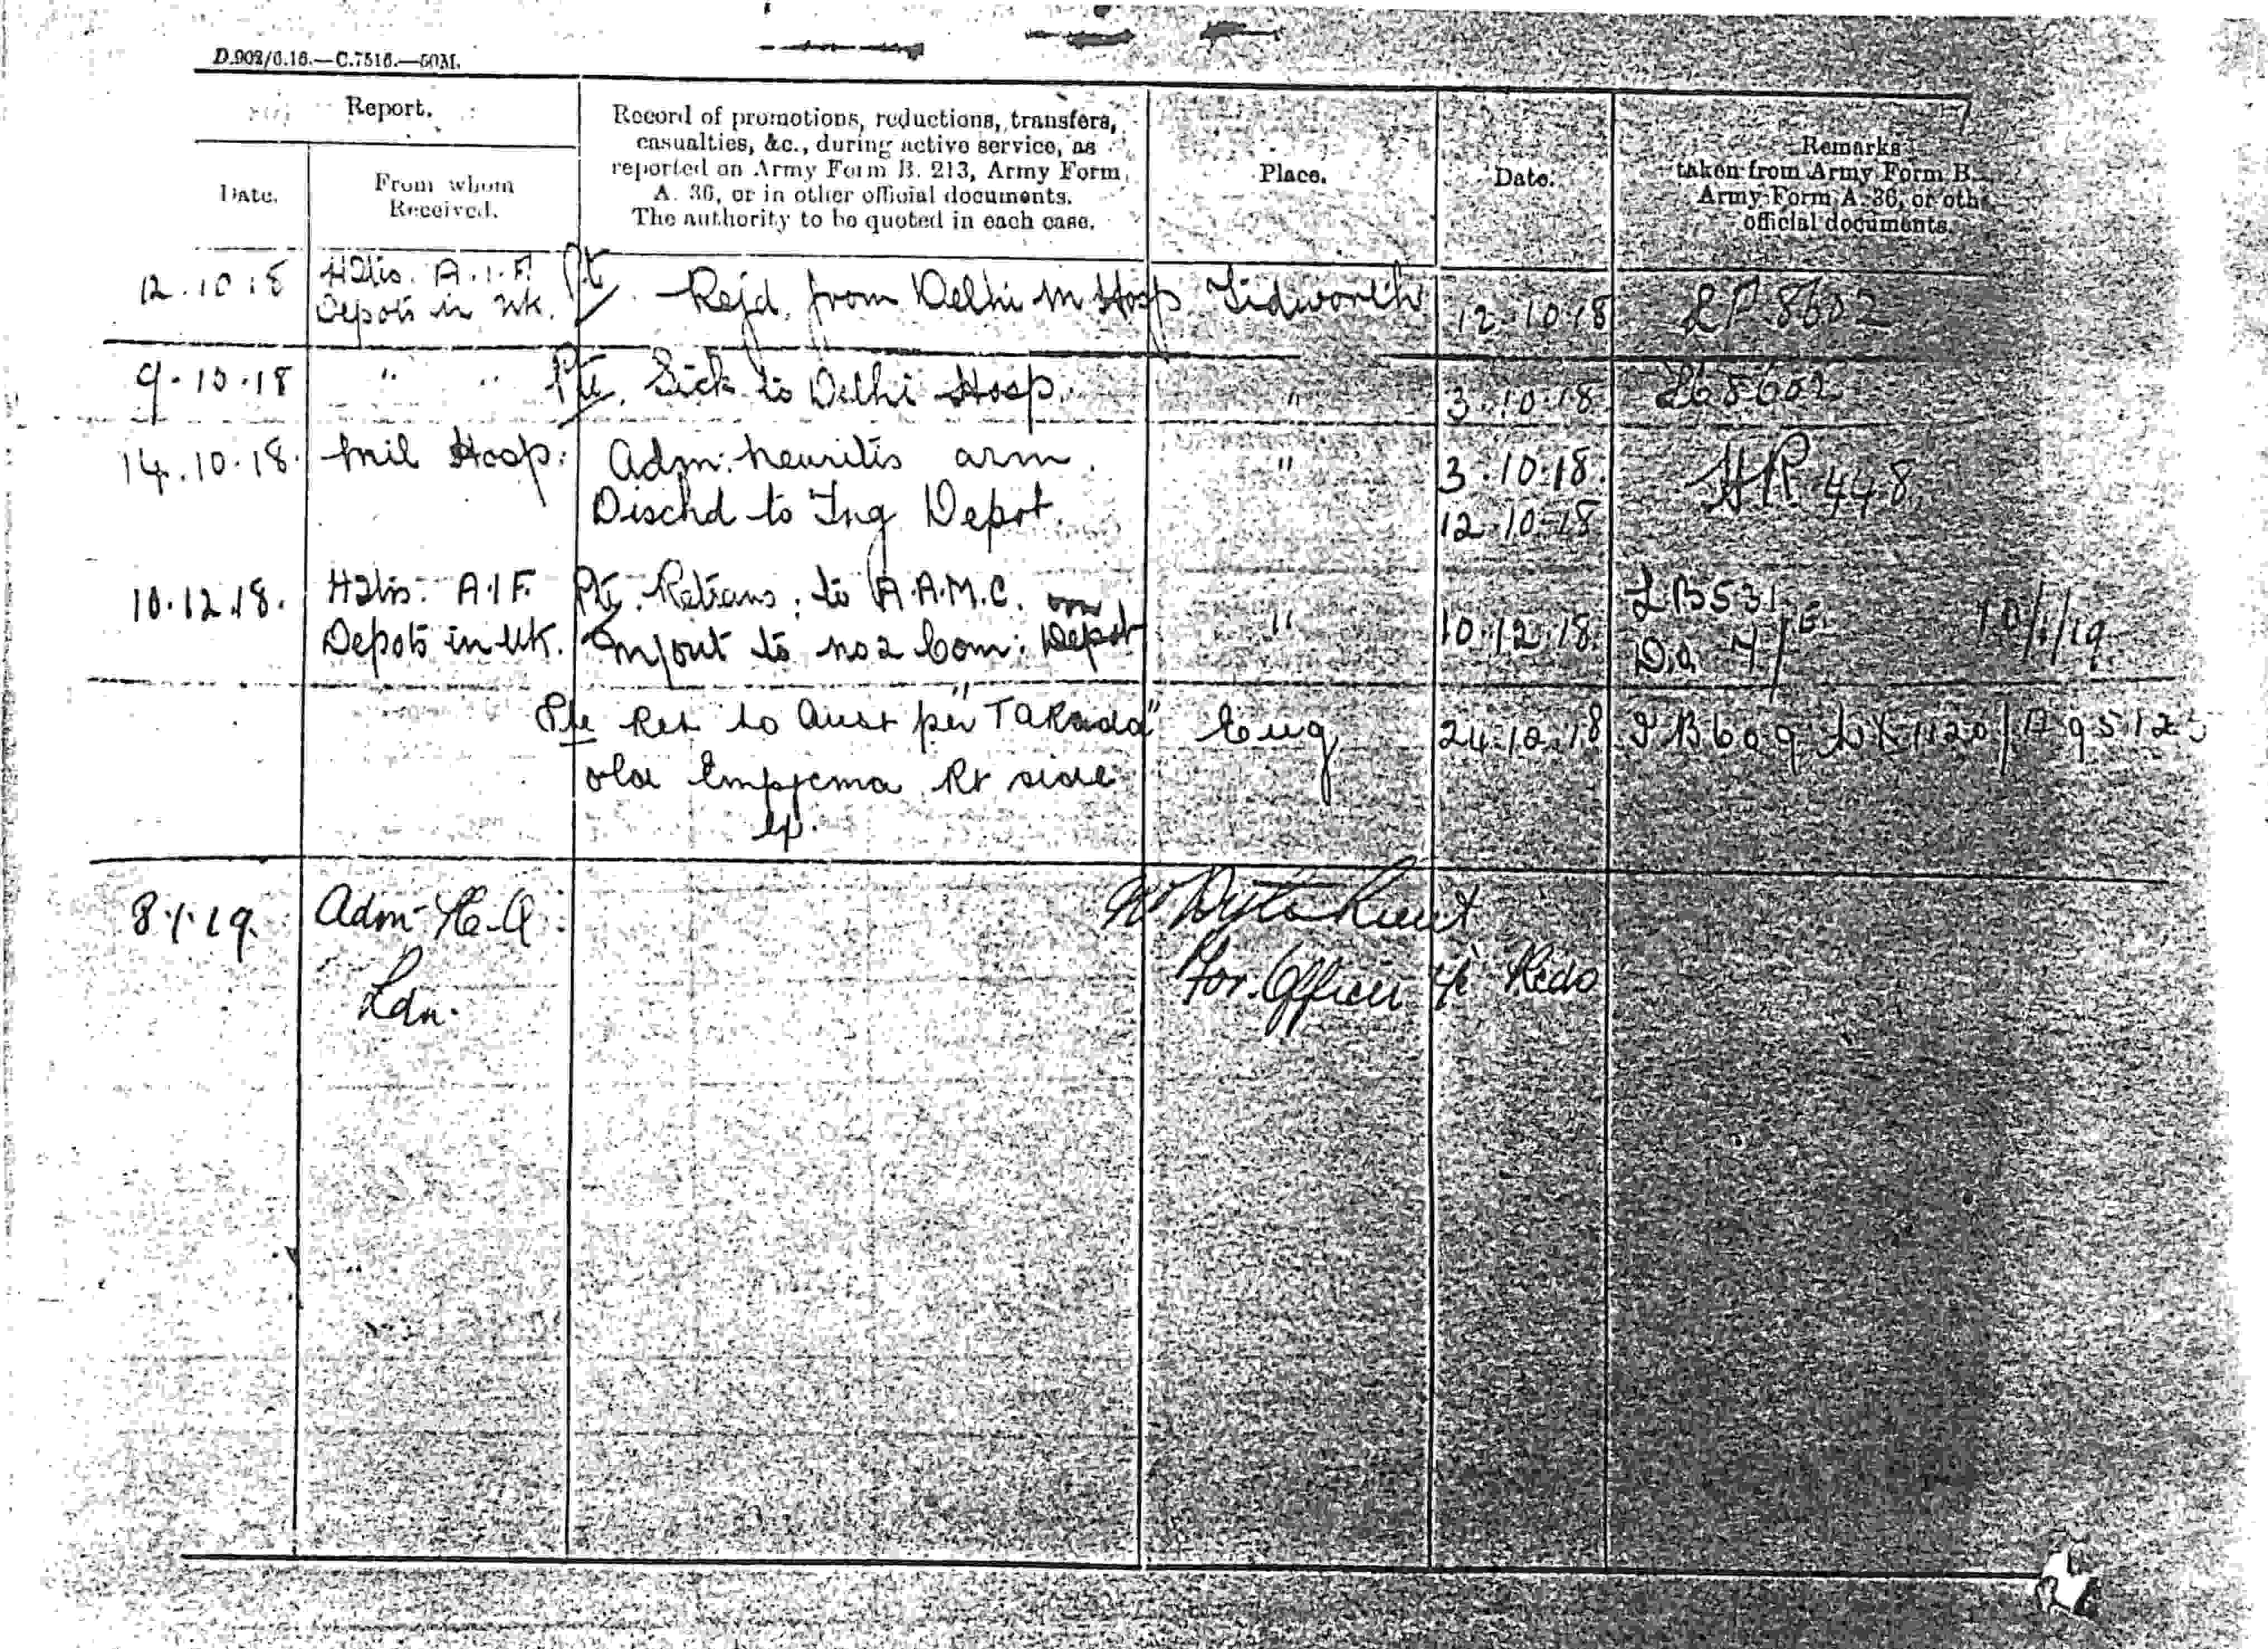 D.902/6.16.—C.7516.—50M.
Report.
Date.
From whom
Received.
Record of promotions, reductions, transfers,
casualties, &c., during active service, as
reported on Army Form B. 213, Army Form
A. 36, or in other official documents.
The authority to be quoted in each case.
Place.
Date.
Remarks
taken from Army Form B.
Army Form A. 36, or oth
official documents.
12.10.18 Hqts. A.I.F. Pt Rejd. from Delhi m Hosp Tidworth 12.10.18 8602
Depots in Uk.
9.10.18 " " Pte. Sick to Delhi Hosp. " 3.10.18 8602
14.10.18. Mil Hosp: Adm: neuritis arm. " 3.10.18. HR 448
Dischd to Tng Depot. 12.10.18
10.12.18. Hqts: A.I.F. Pte. Retrans: to A.A.M.C. " 10.12.18. LB531
Depots in Uk. m/out to no 2 Com: Depot D.O. 10/1/19
Pte Ret to Aust per "Takada" Eng 24.12.18 B609
old Empyema Rt side
8.1.19. Adm. H.Q. Lieut
Ldn. For Officer i/c Recds